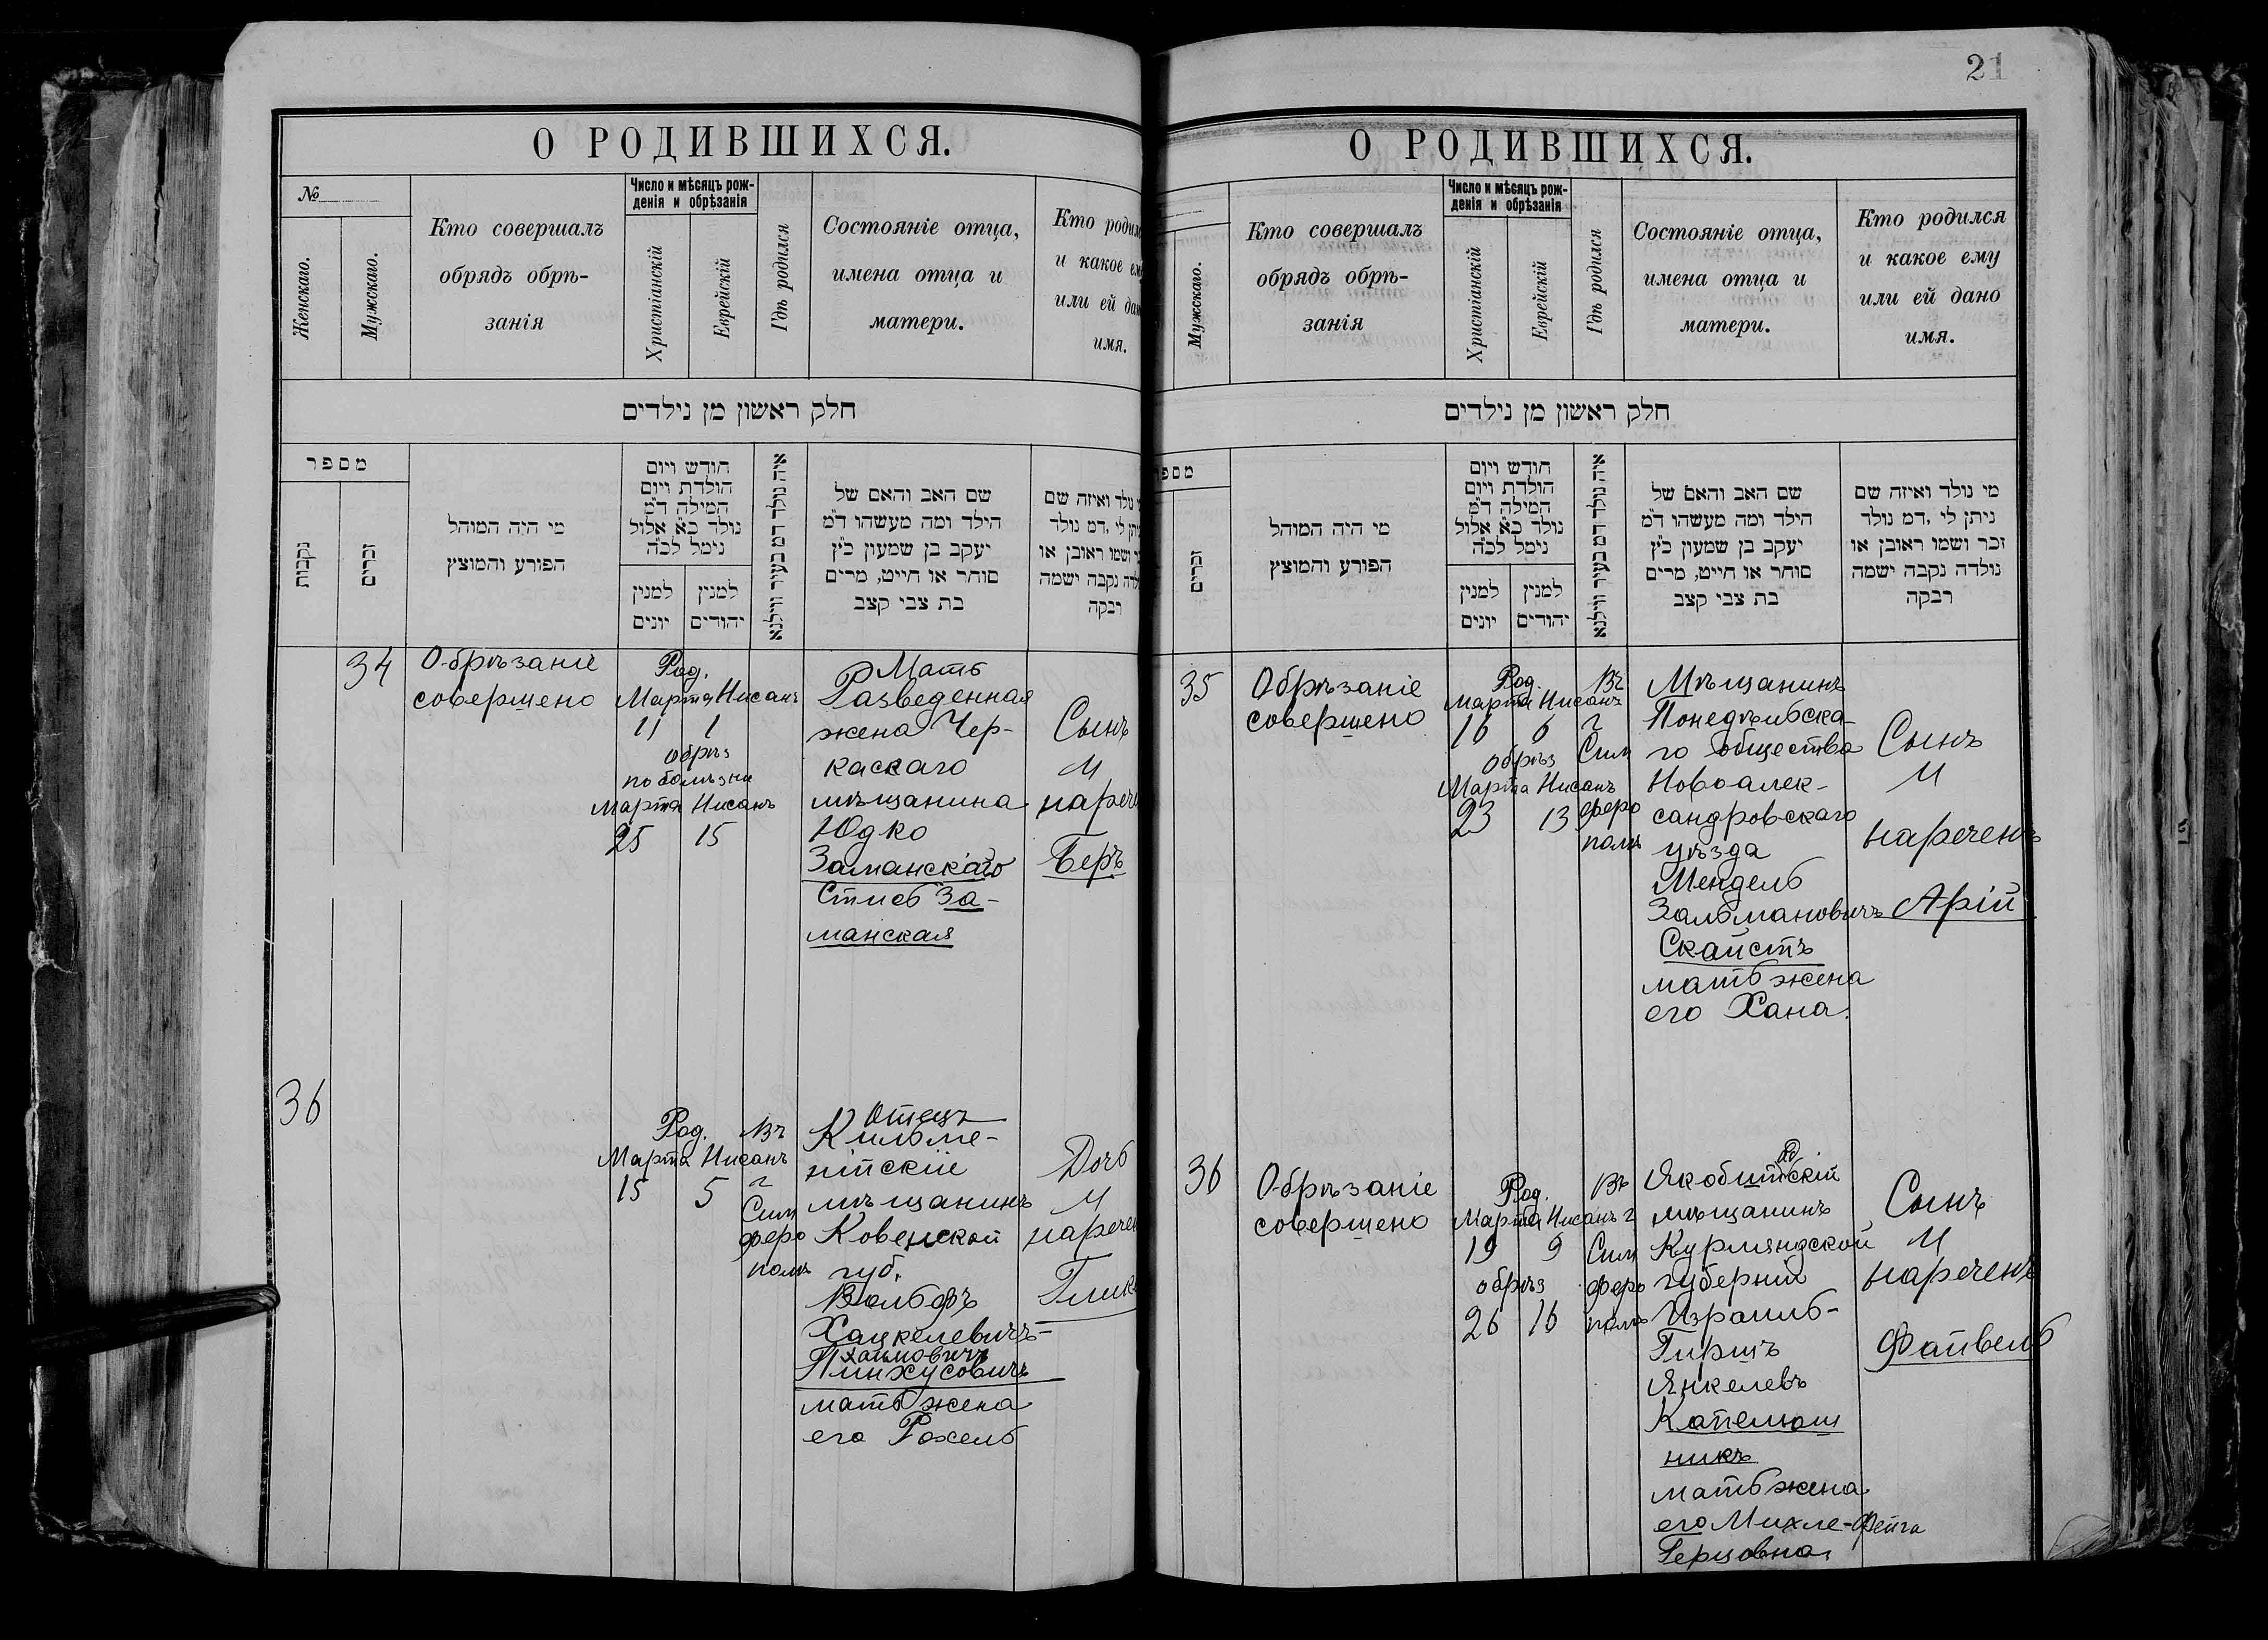 О РОДИВШИХСЯ.
№
Женскаго.
Мужскаго.
Кто совершалъ
обрядъ обрѣ-
занія
Число и мѣсяцъ рож-
денія и обрѣзанія
Христіанскій
Еврейскій
Гдѣ родился
Состояніе отца,
имена отца и
матери.
Кто родил
и какое ем
или ей дан
имя.
חלק ראשון מן נילדים
מספר
נקבות
זכרים
מי היה המוהל
הפורע והמוצץ
חודש ויום
הולדת ויום
המילה ד״מ
נולד כ״א אלול
נימל לכ״ה
למנין
יונים
למנין
יהודים
איה נולד דמ בעיר ווילנא
שם האב והאם של
הילד ומה מעשהו ד״מ
יעקב בן שמעון כ״ץ
סוחר או חייט, מרים
בת צבי קצב
נולד ואיזה שם
יתן לי ,דמ נולד
ושמו ראובן או
לדה נקבה ישמה
רבקה
34
Обрѣзаніе
совершено
Род.
Марта Нисанъ
11 1
обрѣз
по болѣзни
Марта Нисанъ
25 15
Мать
Разведенная
жена Чер-
каскаго
мѣщанина
Юдко
Заманскаго
Стисъ За-
манская
Сынъ
И
нарече
Беръ
36
Род.
Марта Нисанъ
15 5
Въ
г
Сим
феро
полѣ
Отецъ
Кильме-
нтскій
мѣщанинъ
Ковенской
губ.
Вольфъ
Хацкелевичъ-
Хаимовичъ
Пинхусовичъ
мать жена
его Рохель
Дочь
И
наречен
Глик
21
О РОДИВШИХСЯ.
Мужскаго.
Кто совершалъ
обрядъ обрѣ-
занія
Число и мѣсяцъ рож-
денія и обрѣзанія
Христіанскій
Еврейскій
Гдѣ родился
Состояніе отца,
имена отца и
матери.
Кто родился
и какое ему
или ей дано
имя.
חלק ראשון מן נילדים
מספ
זכרים
מי היה המוהל
הפורע והמוצץ
חודש ויום
הולדת ויום
המילה ד״מ
נולד כ״א אלול
נימל לכ״ה
למנין
יונים
למנין
יהודים
איה נולד דמ בעיר ווילנא
שם האב והאם של
הילד ומה מעשהו ד״מ
יעקב בן שמעון כ״ץ
סוחר או חייט, מרים
בת צבי קצב
מי נולד ואיזה שם
ניתן לי ,דמ נולד
זכר ושמו ראובן או
נולדה נקבה ישמה
רבקה
35
Обрѣзаніе
совершено
Род.
Марта Нисанъ
16 6
обрѣз
Марта Нисанъ
23 13
Въ
г
Сим
феро
полѣ
Мѣщанинъ
Понедѣльска-
го общества
Новоалек-
сандровскаго
уѣзда
Мендель
Зальмановичъ
Скайстъ
мать жена
его Хана.
Сынъ
И
нареченъ
Арій
36
Обрѣзаніе
совершено
Род.
Марта Нисанъ
19 9
обрѣз
26 16
Въ
г
Сим
феро
полѣ
мѣщанинъ
Курляндской
губерніи
Израиль-
Гиршъ
Янкелевъ
Капелюш
никъ
мать жена
его Михле-Фейга
Герцовна.
Сынъ
И
нареченъ
Файвель